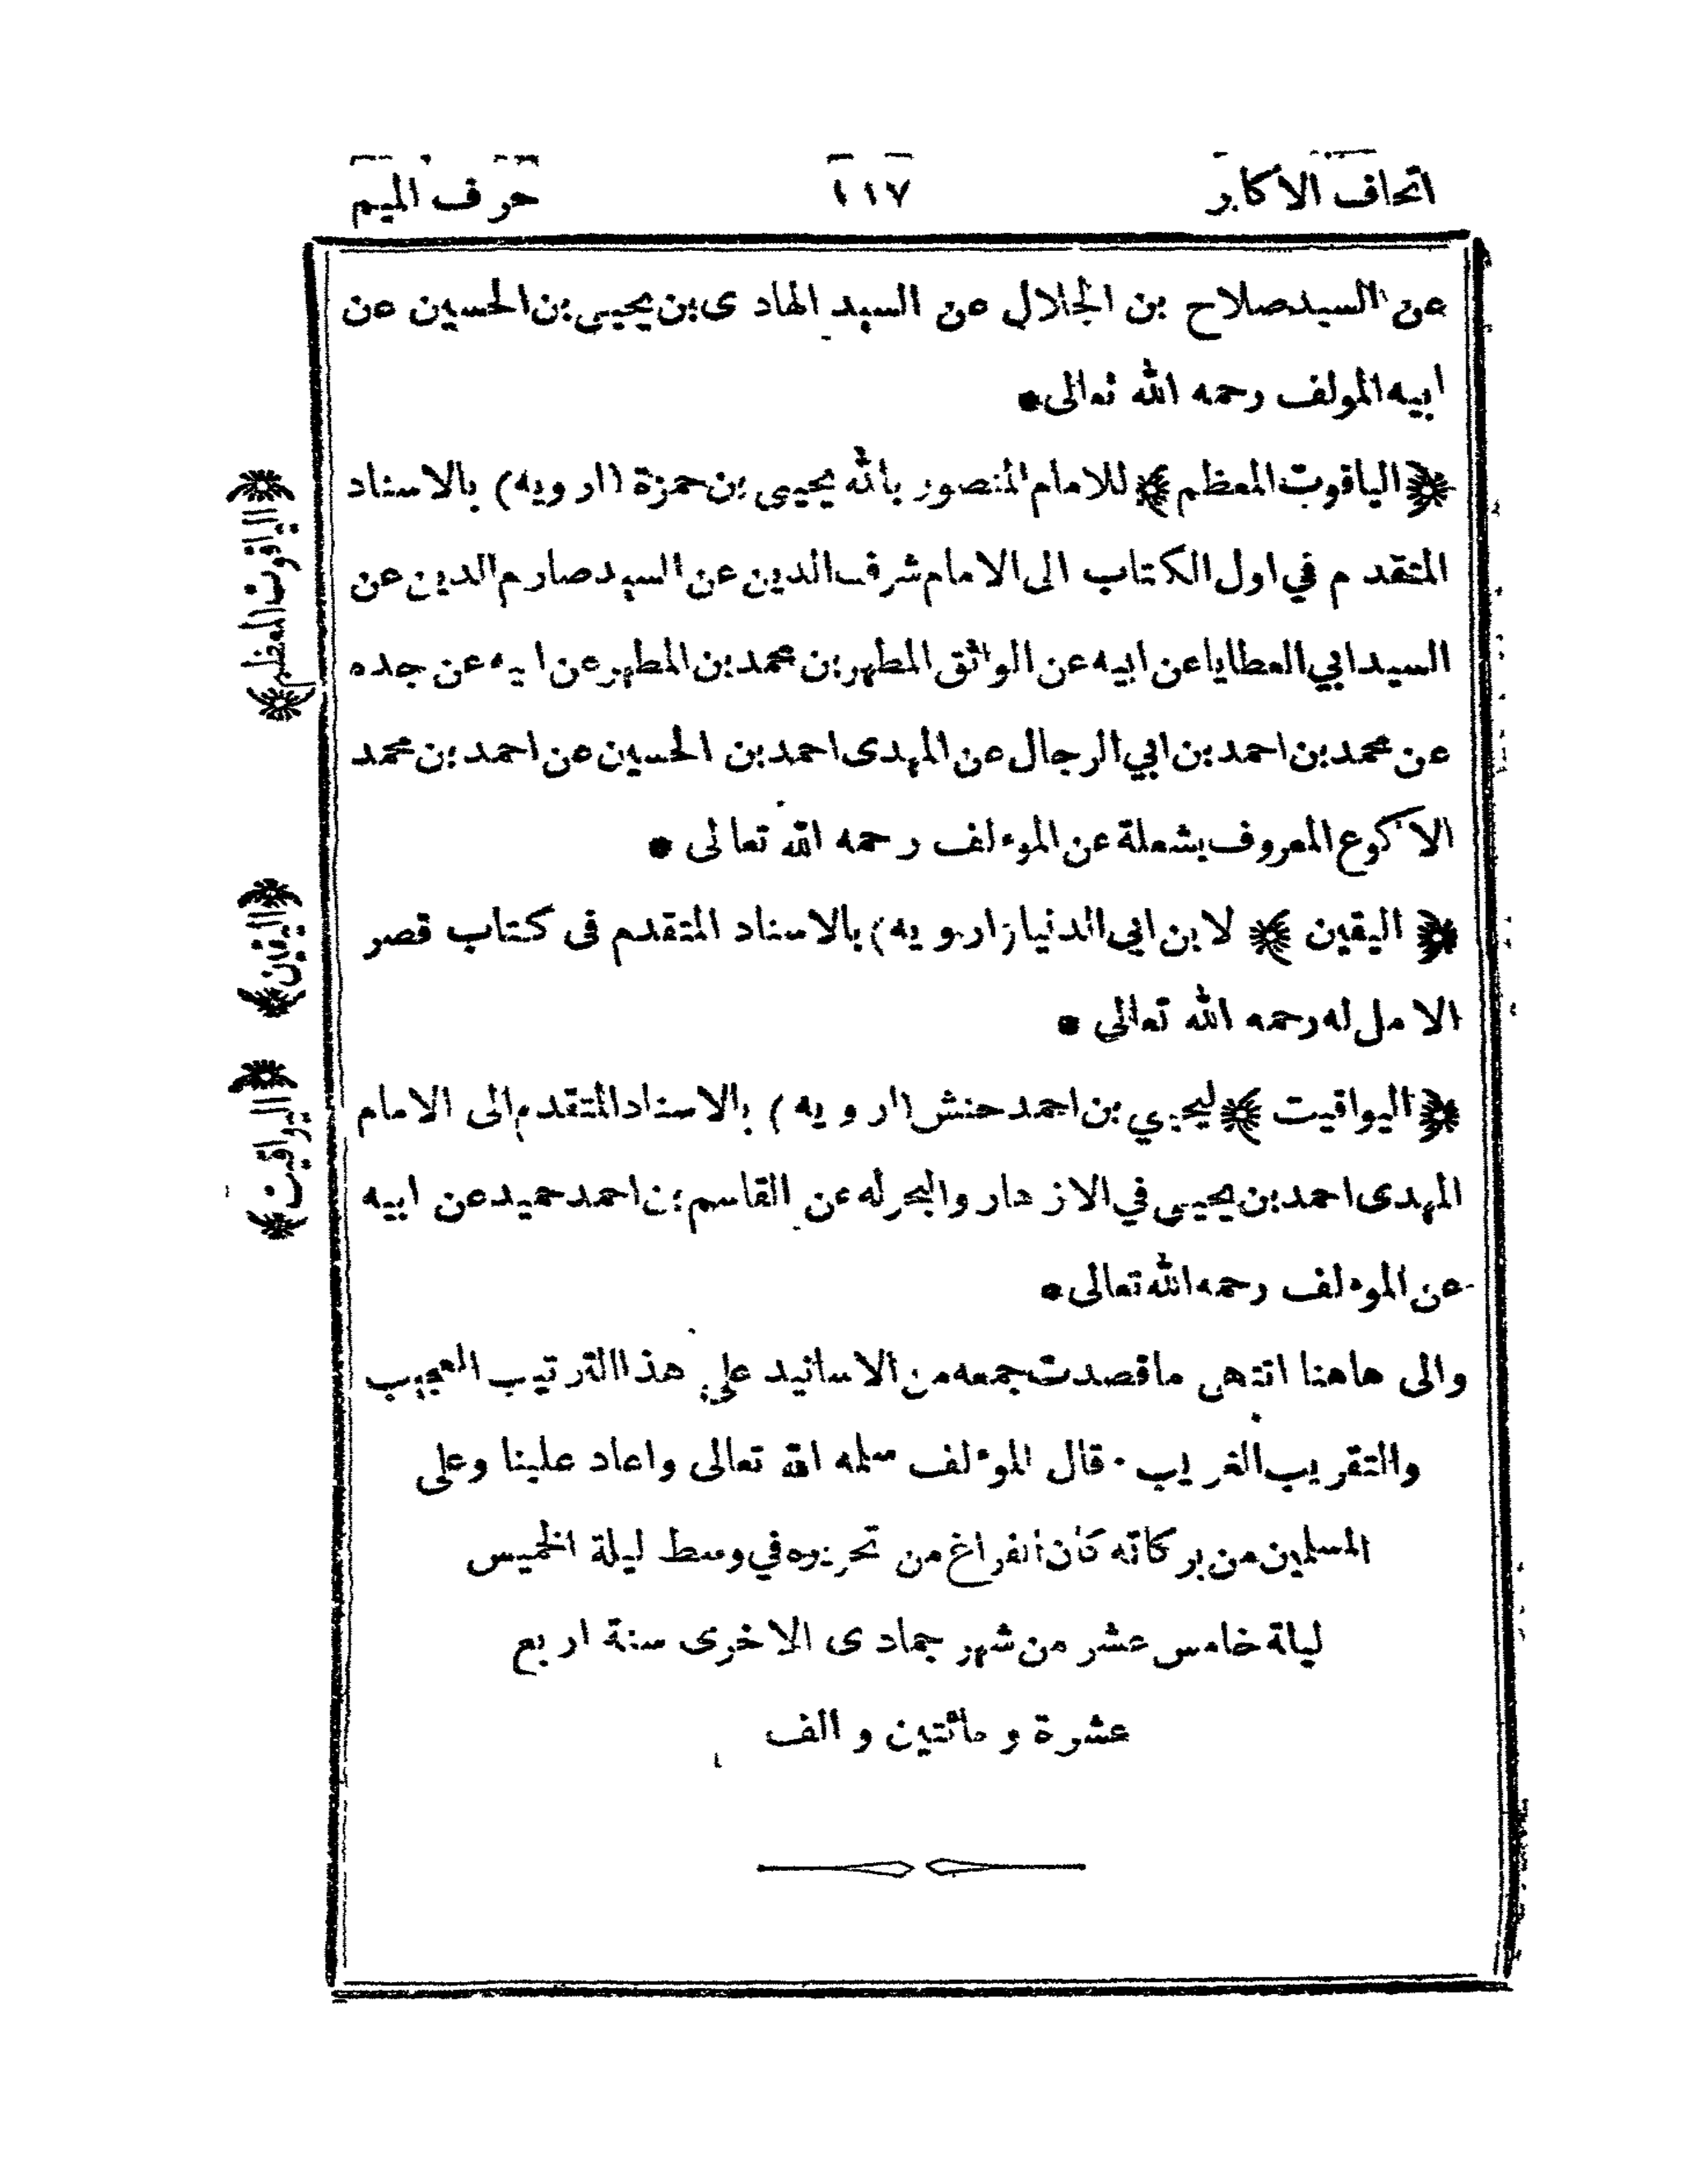 اتحاف الاكابر
١١٧
حرف الميم
عن السيد صلاح بن الجلال عن السيد الهادى بن يحيى بن الحسين عن
ابيه المولف رحمه الله تعالى *
﴿ الياقوت المعظم ﴾ للامام المنصور بالله يحيى بن حمزة (ارويه) بالاسناد
المتقدم في اول الكتاب الى الامام شرف الدين عن السيد صارم الدين عن
السيد ابي العطايا عن ابيه عن الواثق المطهر بن محمد بن المطهر عن ابيه عن جده
عن محمد بن احمد بن ابي الرجال عن المهدى احمد بن الحسين عن احمد بن محمد
الاكوع المعروف بشعلة عن المؤلف رحمه الله تعالى *
﴿ اليقين ﴾ لابن ابي الدنيا (ارويه) بالاسناد المتقدم فى كتاب قصر
الامل له رحمه الله تعالى *
﴿ اليواقيت ﴾ ليحيي بن احمد حنش (ارويه) بالاسناد المتقدم الى الامام
المهدى احمد بن يحيى في الازهار والبحر له عن القاسم بن احمد حميد عن ابيه
عن المؤلف رحمه الله تعالى *
والى هاهنا انتهى ما قصدت جمعه من الاسانيد على هذا الترتيب العجيب
والتقريب الغريب · قال المؤلف سلمه الله تعالى واعاد علينا وعلى
المسلمين من بركاته كان الفراغ من تحريره في وسط ليلة الخميس
ليلة خامس عشر من شهر جمادى الاخرى سنة اربع
عشرة و مائتين و الف
﴿ الياقوت المعظم ﴾
﴿ اليقين ﴾
﴿ اليواقيت ﴾